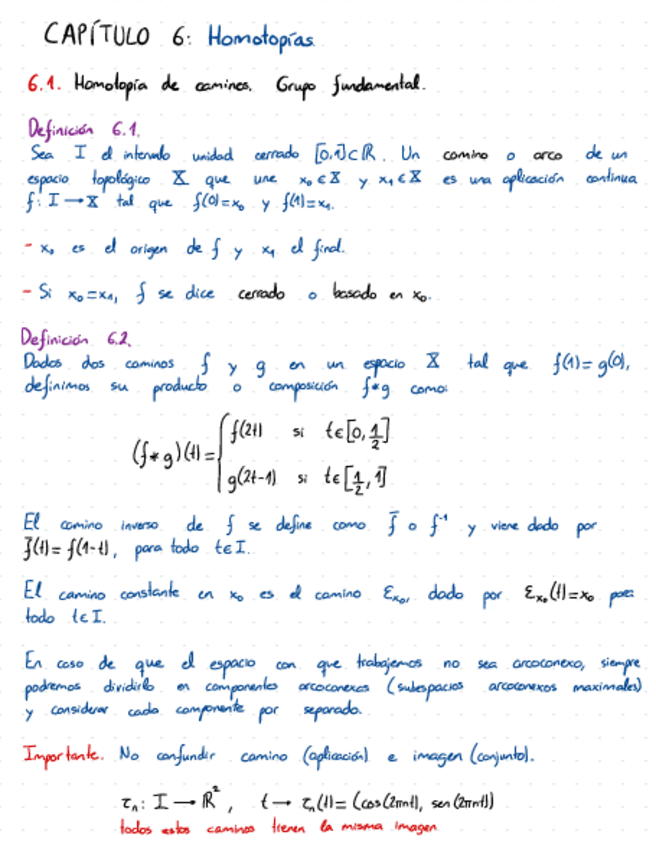 CAPÍTULO 6: Homotopías
6.1. Homotopía de caminos. Grupo fundamental.
Definición 6.1.
Sea I el intervalo unidad cerrado [0,1]⊂ℝ. Un camino o arco de un
espacio topológico X que une x₀∈X y x₁∈X es una aplicación continua
f: I→X tal que f(0)=x₀ y f(1)=x₁.
- x₀ es el origen de f y x₁ el final.
- Si x₀=x₁, f se dice cerrado o basado en x₀.
Definición 6.2.
Dados dos caminos f y g en un espacio X tal que f(1)=g(0),
definimos su producto o composición f*g como:
(f*g)(t)={ f(2t) si t∈[0,1/2]
g(2t-1) si t∈[1/2,1]
El camino inverso de f se define como f̄ o f⁻¹ y viene dado por
f̄(t)=f(1-t), para todo t∈I.
El camino constante en x₀ es el camino Ɛx₀, dado por Ɛx₀(t)=x₀ para
todo t∈I.
En caso de que el espacio con que trabajemos no sea arcoconexo, siempre
podremos dividirlo en componentes arcoconexas (subespacios arcoconexos maximales)
y considerar cada componente por separado.
Importante. No confundir camino (aplicación) e imagen (conjunto).
τₙ: I→ℝ², t→τₙ(t)=(cos(2πnt), sen(2πnt))
todos estos caminos tienen la misma imagen